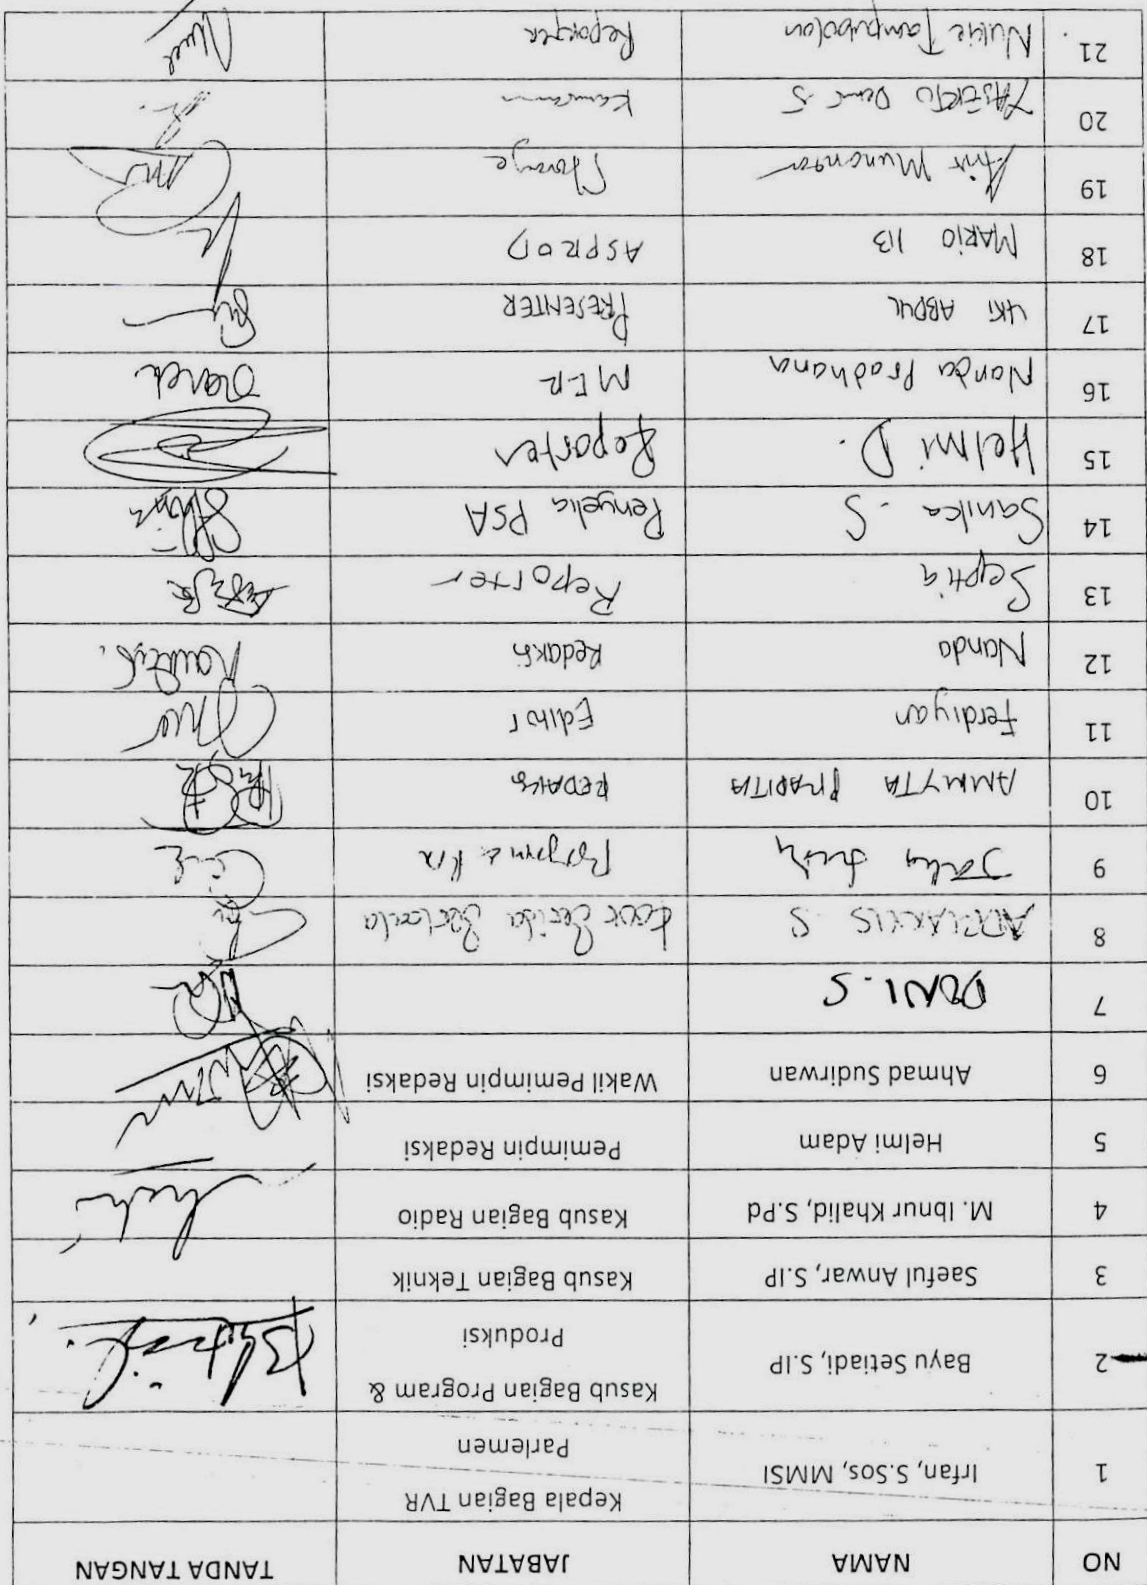 NO NAMA JABATAN TANDA TANGAN
1 Irfan, S.Sos, MMSI Kepala Bagian TVR
Parlemen
2 Bayu Setiadi, S.IP Kasub Bagian Program &
Produksi
3 Saeful Anwar, S.IP Kasub Bagian Teknik
4 M. Ibnur Khalid, S.Pd Kasub Bagian Radio
5 Helmi Adam Pemimpin Redaksi
6 Ahmad Sudirwan Wakil Pemimpin Redaksi
7 DONI.S
8 S
9
10 AMMYTA PRADITA REDAKSI
11 Ferdiyan Editor
12 Nanda Redaksi
13 Septia Reporter
14 Sanika.S Penyelia PSA
15 Helmi D. Reporter
16 Nanda Pradhana MER
17 UKI ABDUL PRESENTER
18 MARIO 113 ASPROD
19
20
21 Tampubolon Reporter